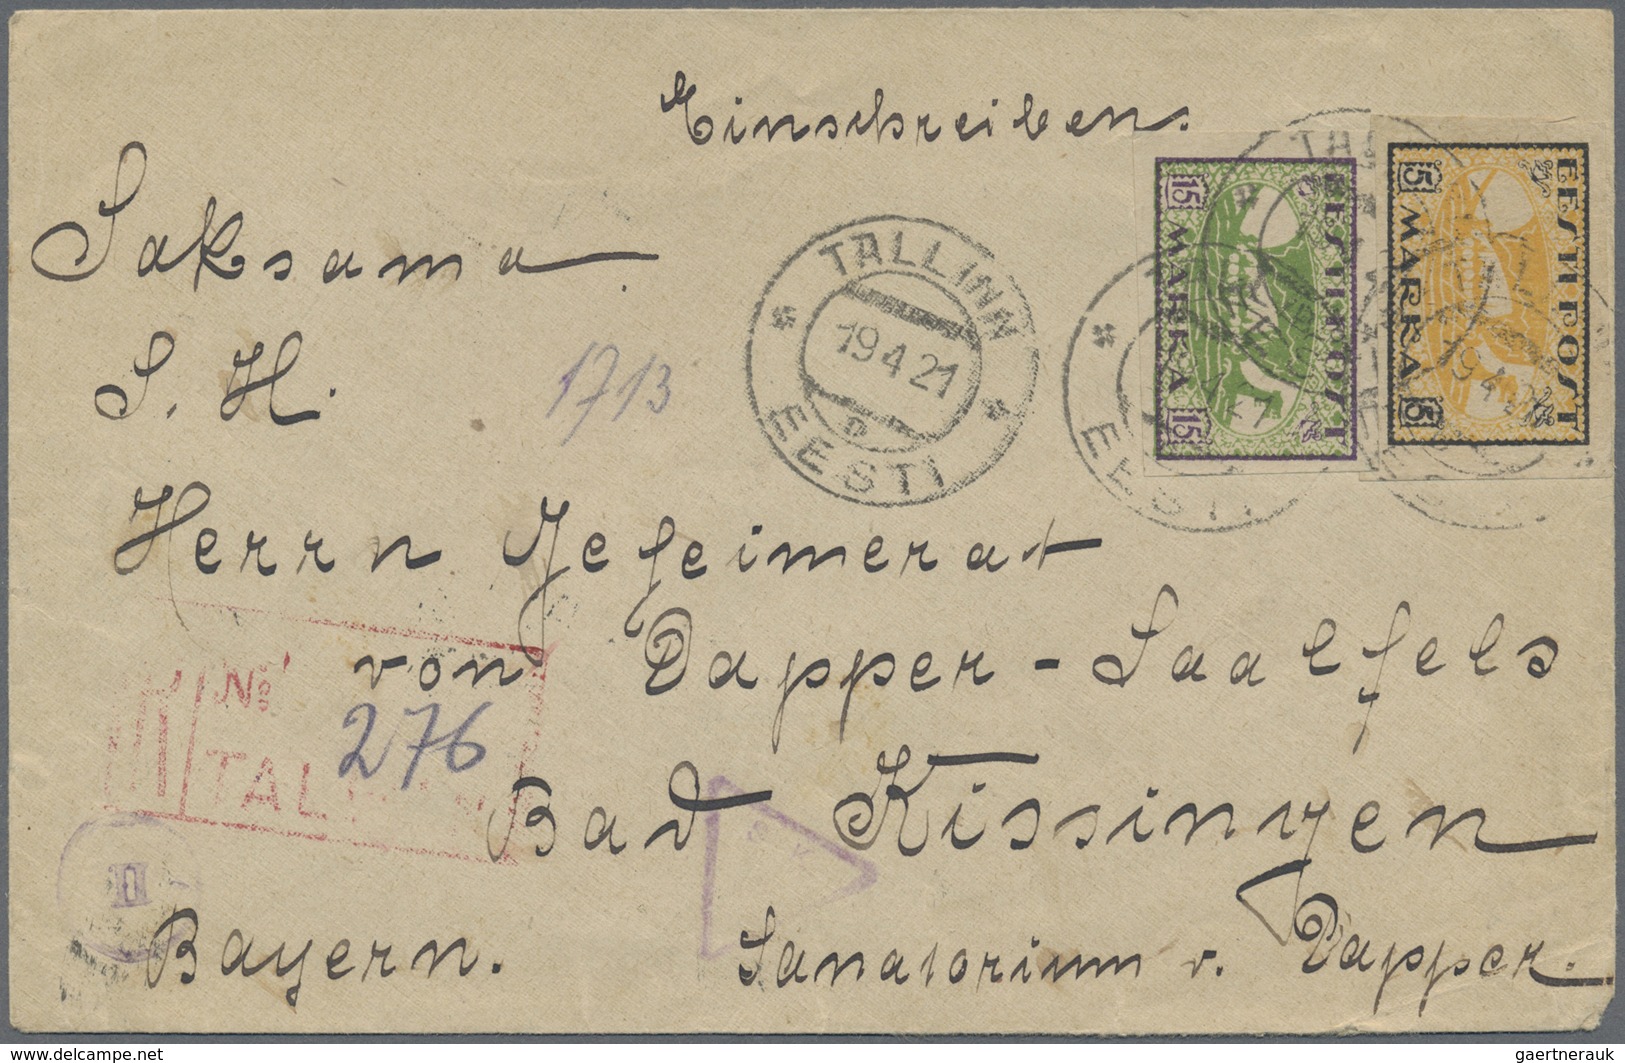 Einschreiben.
Saksama
S. H.
1713
Herrn Gefeimerat
von Dapper-Saalfels
Bad Kissingen
Sanatorium v. Dapper.
Bayern.
TALLINN
19 4 21
EESTI
EESTI POST
15 MARKA 15
EESTI POST
5 MARKA 5
EESTI
19 4 21
№
276
TAL
II
www.delcampe.net
gaertnerauk